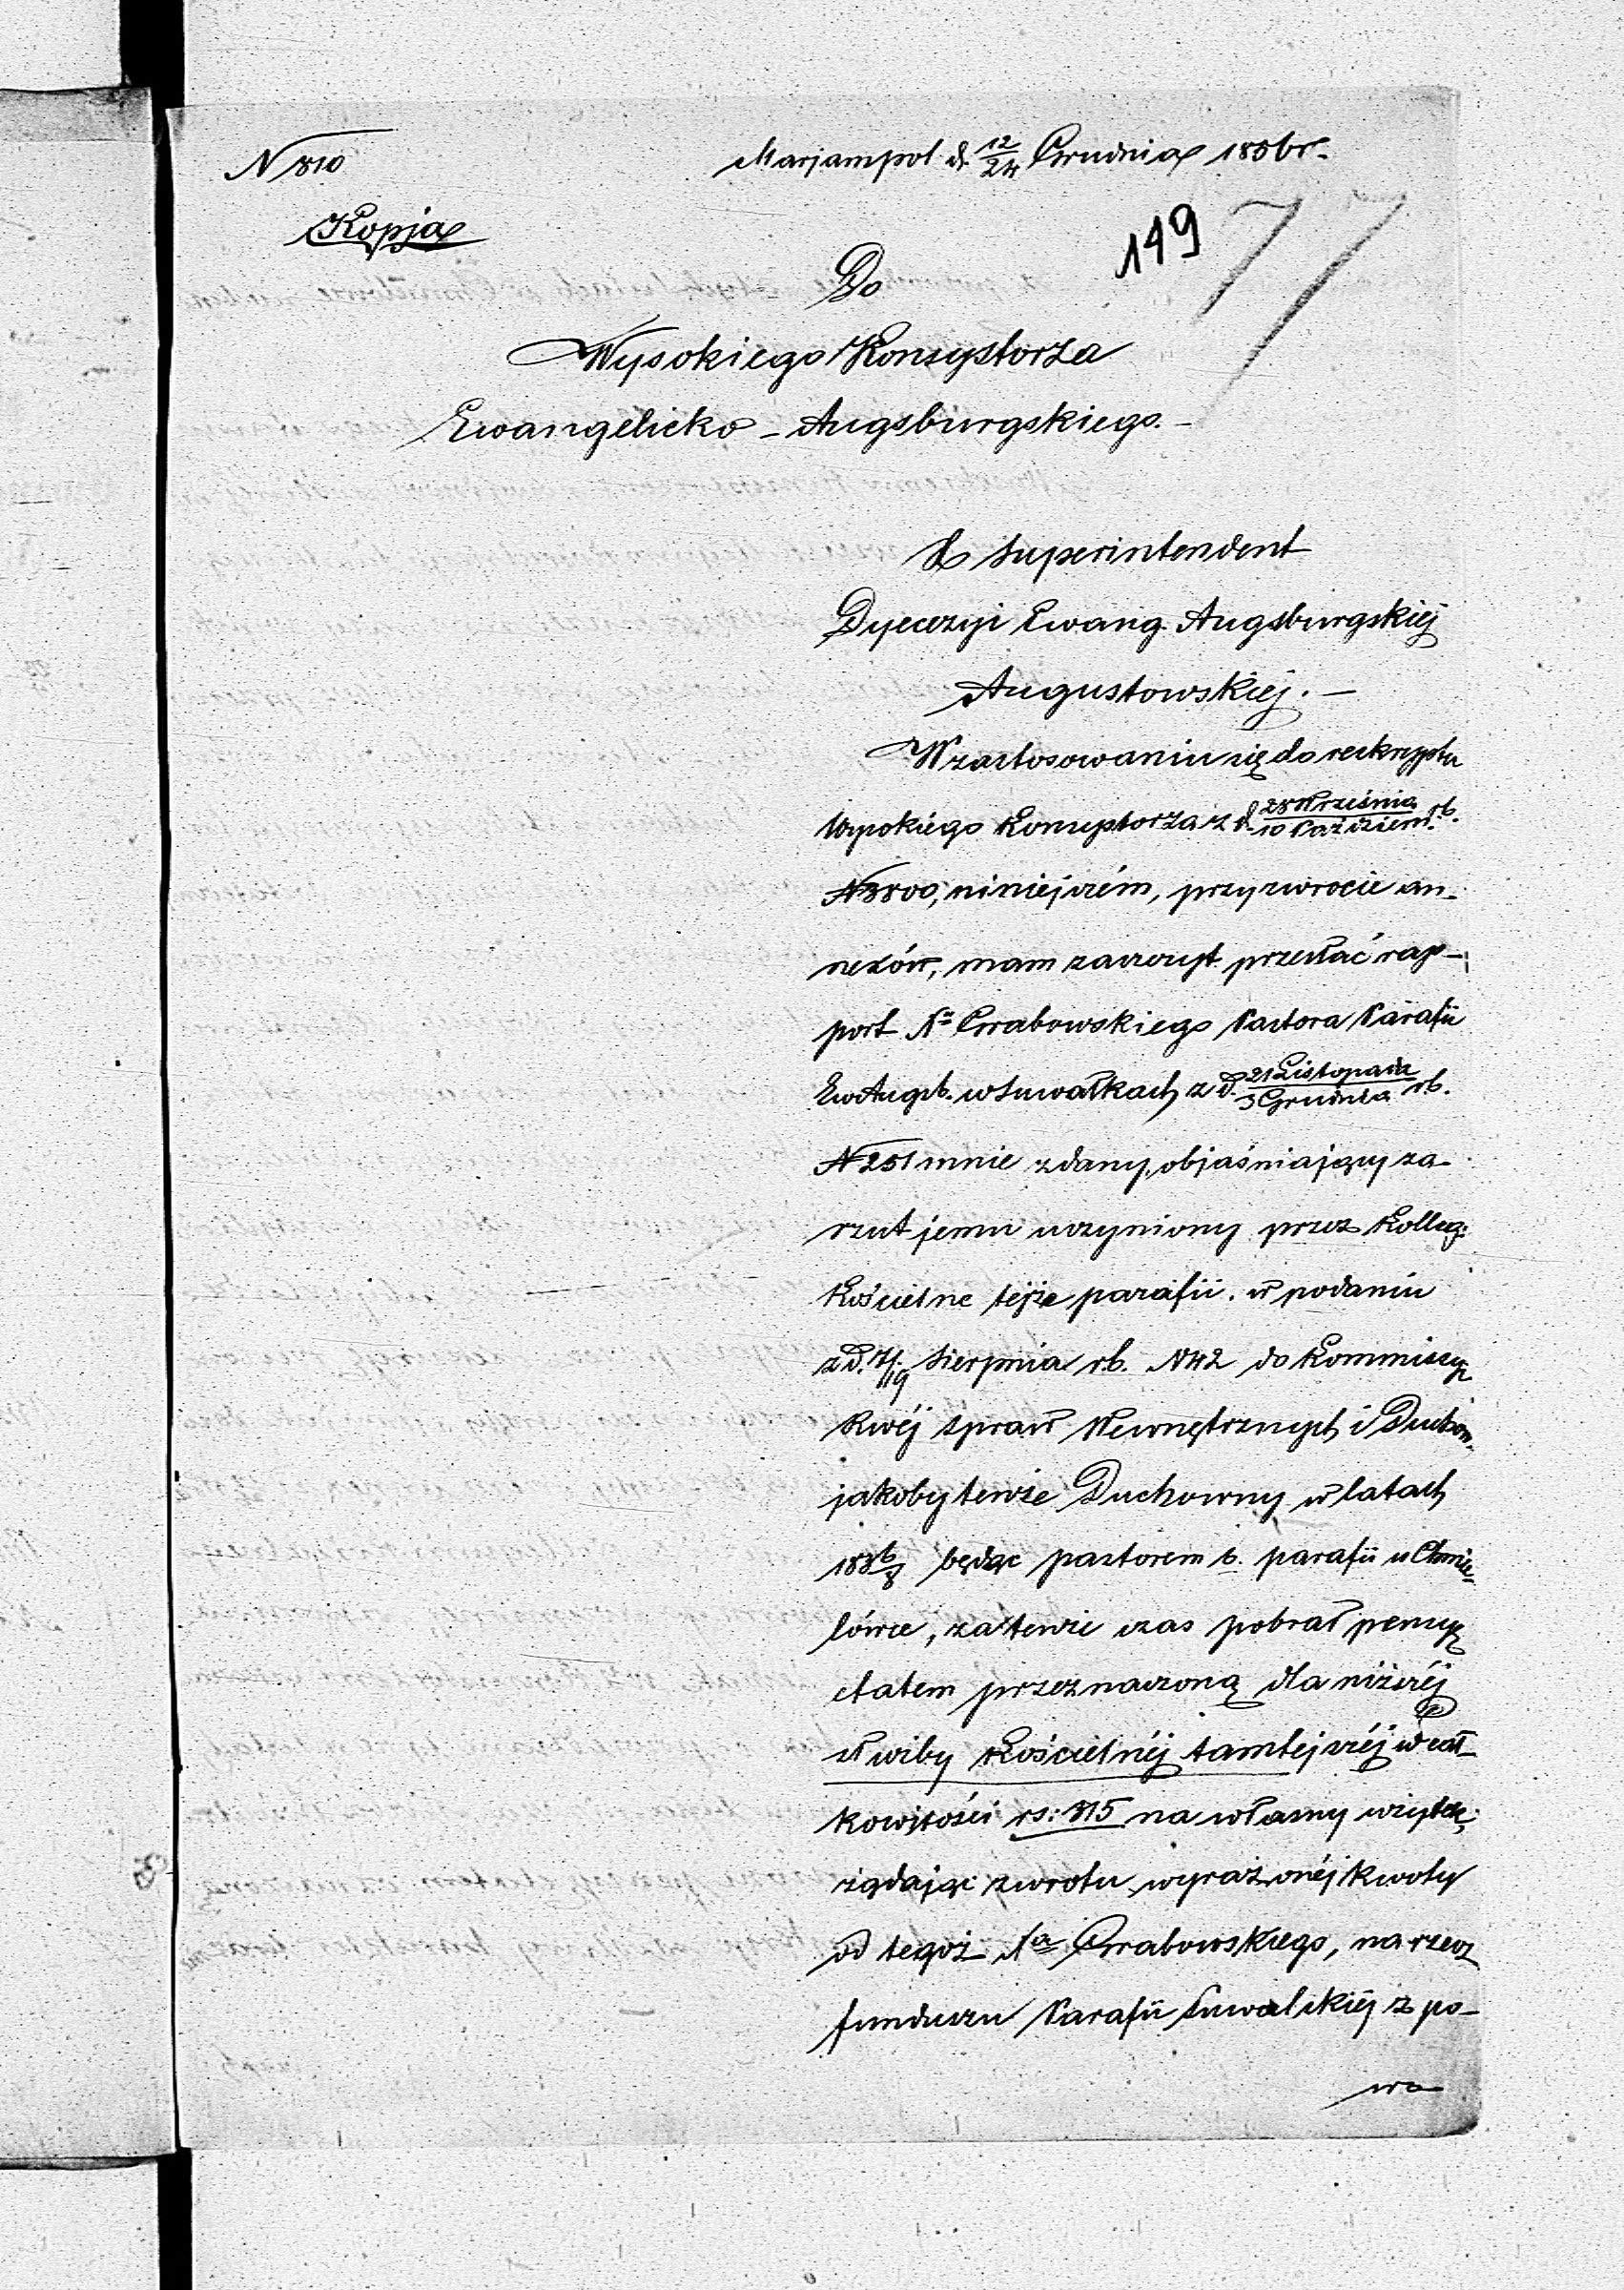 N 810
Marjampol d. 12/24 Grudnia 1856 r.
Kopja
149 77
Do
Wysokiego Konsystorza
Ewangelicko - Augsburgskiego. -
Superintendent
Dyecezyi Ewang. Augsburgskiej
Augustowskiej. -
W zastosowaniu się do reskryptu
Wysokiego Konsystorza z d. 28 Września/10 Paździem. rb.
N 3800, niniejszém, przy zwrocie an-
nexów, mam zaszczyt przesłać rap-
port Xa Grabowskiego Pastora Parafii
Ew Augsb. w Suwałkach z d. 21 Listopada/3 Grudnia rb.
N 251 mnie zdany, objaśniający za-
rzut jemu uczyniony przez Kolleg.
Kościelne tejże parafii w podaniu
z d. 7/19 Sierpnia rb. N 42 do Kommissyi
Rwéj Spraw Wewnętrznych i Duchow.
jakoby tenże Duchowny w latach
1836/8 będąc pastorem b. parafii w Chmie-
lówce, za tenże czas pobrał pensyę
etatem przeznaczoną dla niższéj
służby Kościelnéj tamtejszéj w cał-
kowitości rs: 315 na własny użytek,
żądając zwrotu wyrażonéj kwoty
od tegoż Xa Grabowskiego, na rzecz
funduszu Parafii Suwalskiéj z po-
wo